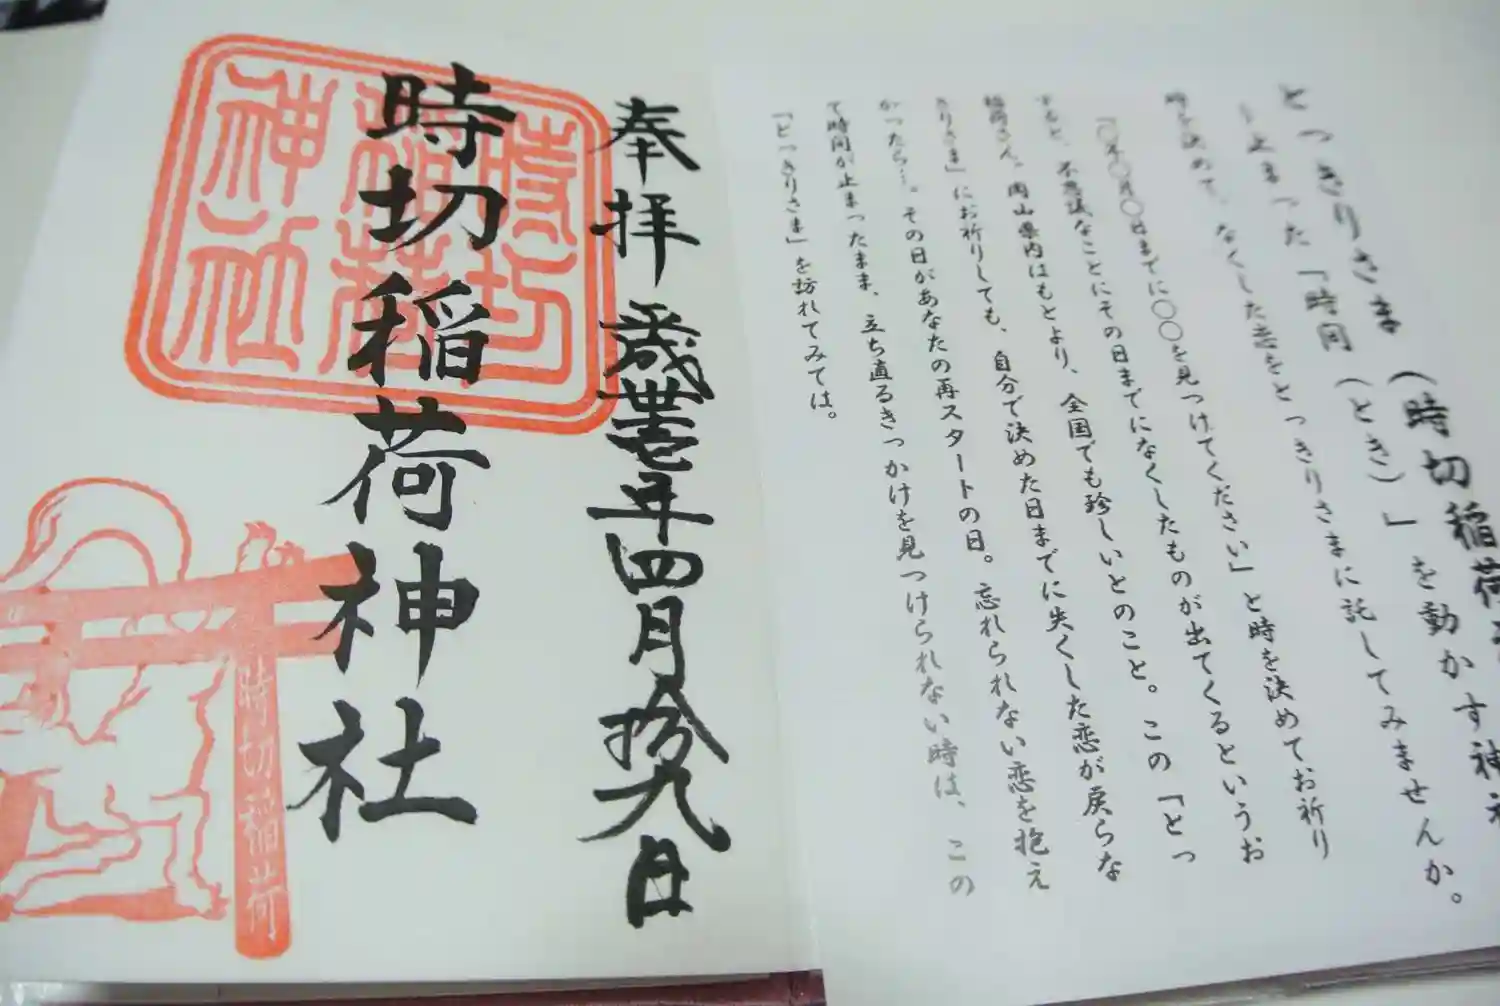 とっきりさま(時切稲荷
止まった「時間(とき)」を動かす神社
時を決めて、なくした恋をとっきりさまに託してみませんか。
「〇年〇月〇日までに〇〇を見つけてください」と時を決めてお祈り
すると、不思議なことにその日までになくしたものが出てくるというお
稲荷さん。岡山県内はもとより、全国でも珍しいとのこと。この「とっ
きりさま」にお祈りしても、自分で決めた日までに失くした恋が戻らな
かったら…。その日があなたの再スタートの日。忘れられない恋を抱え
て時間が止まったまま、立ち直るきっかけを見つけられない時は、この
「とっきりさま」を訪れてみては。
奉拝 平成丗壱年四月拾九日
時切稲荷神社
時切
稲荷
神社
時切稲荷